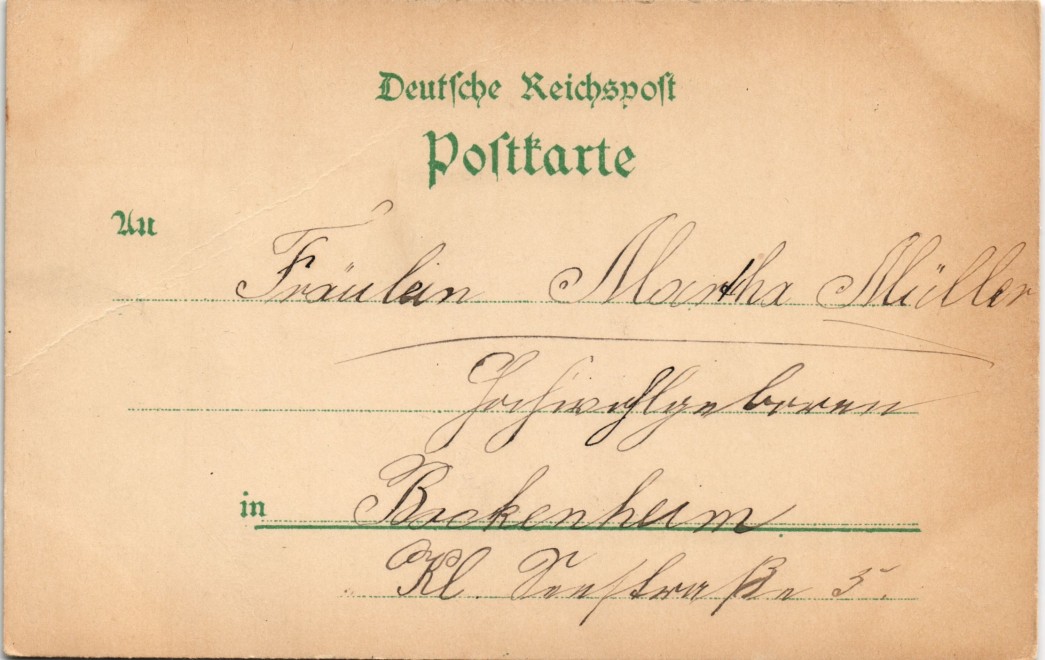 Deutsche Reichspost
Postkarte
An
Fräulein Martha Müller
Hochwohlgeboren
in Bockenheim
Kl. Seestraße 5.